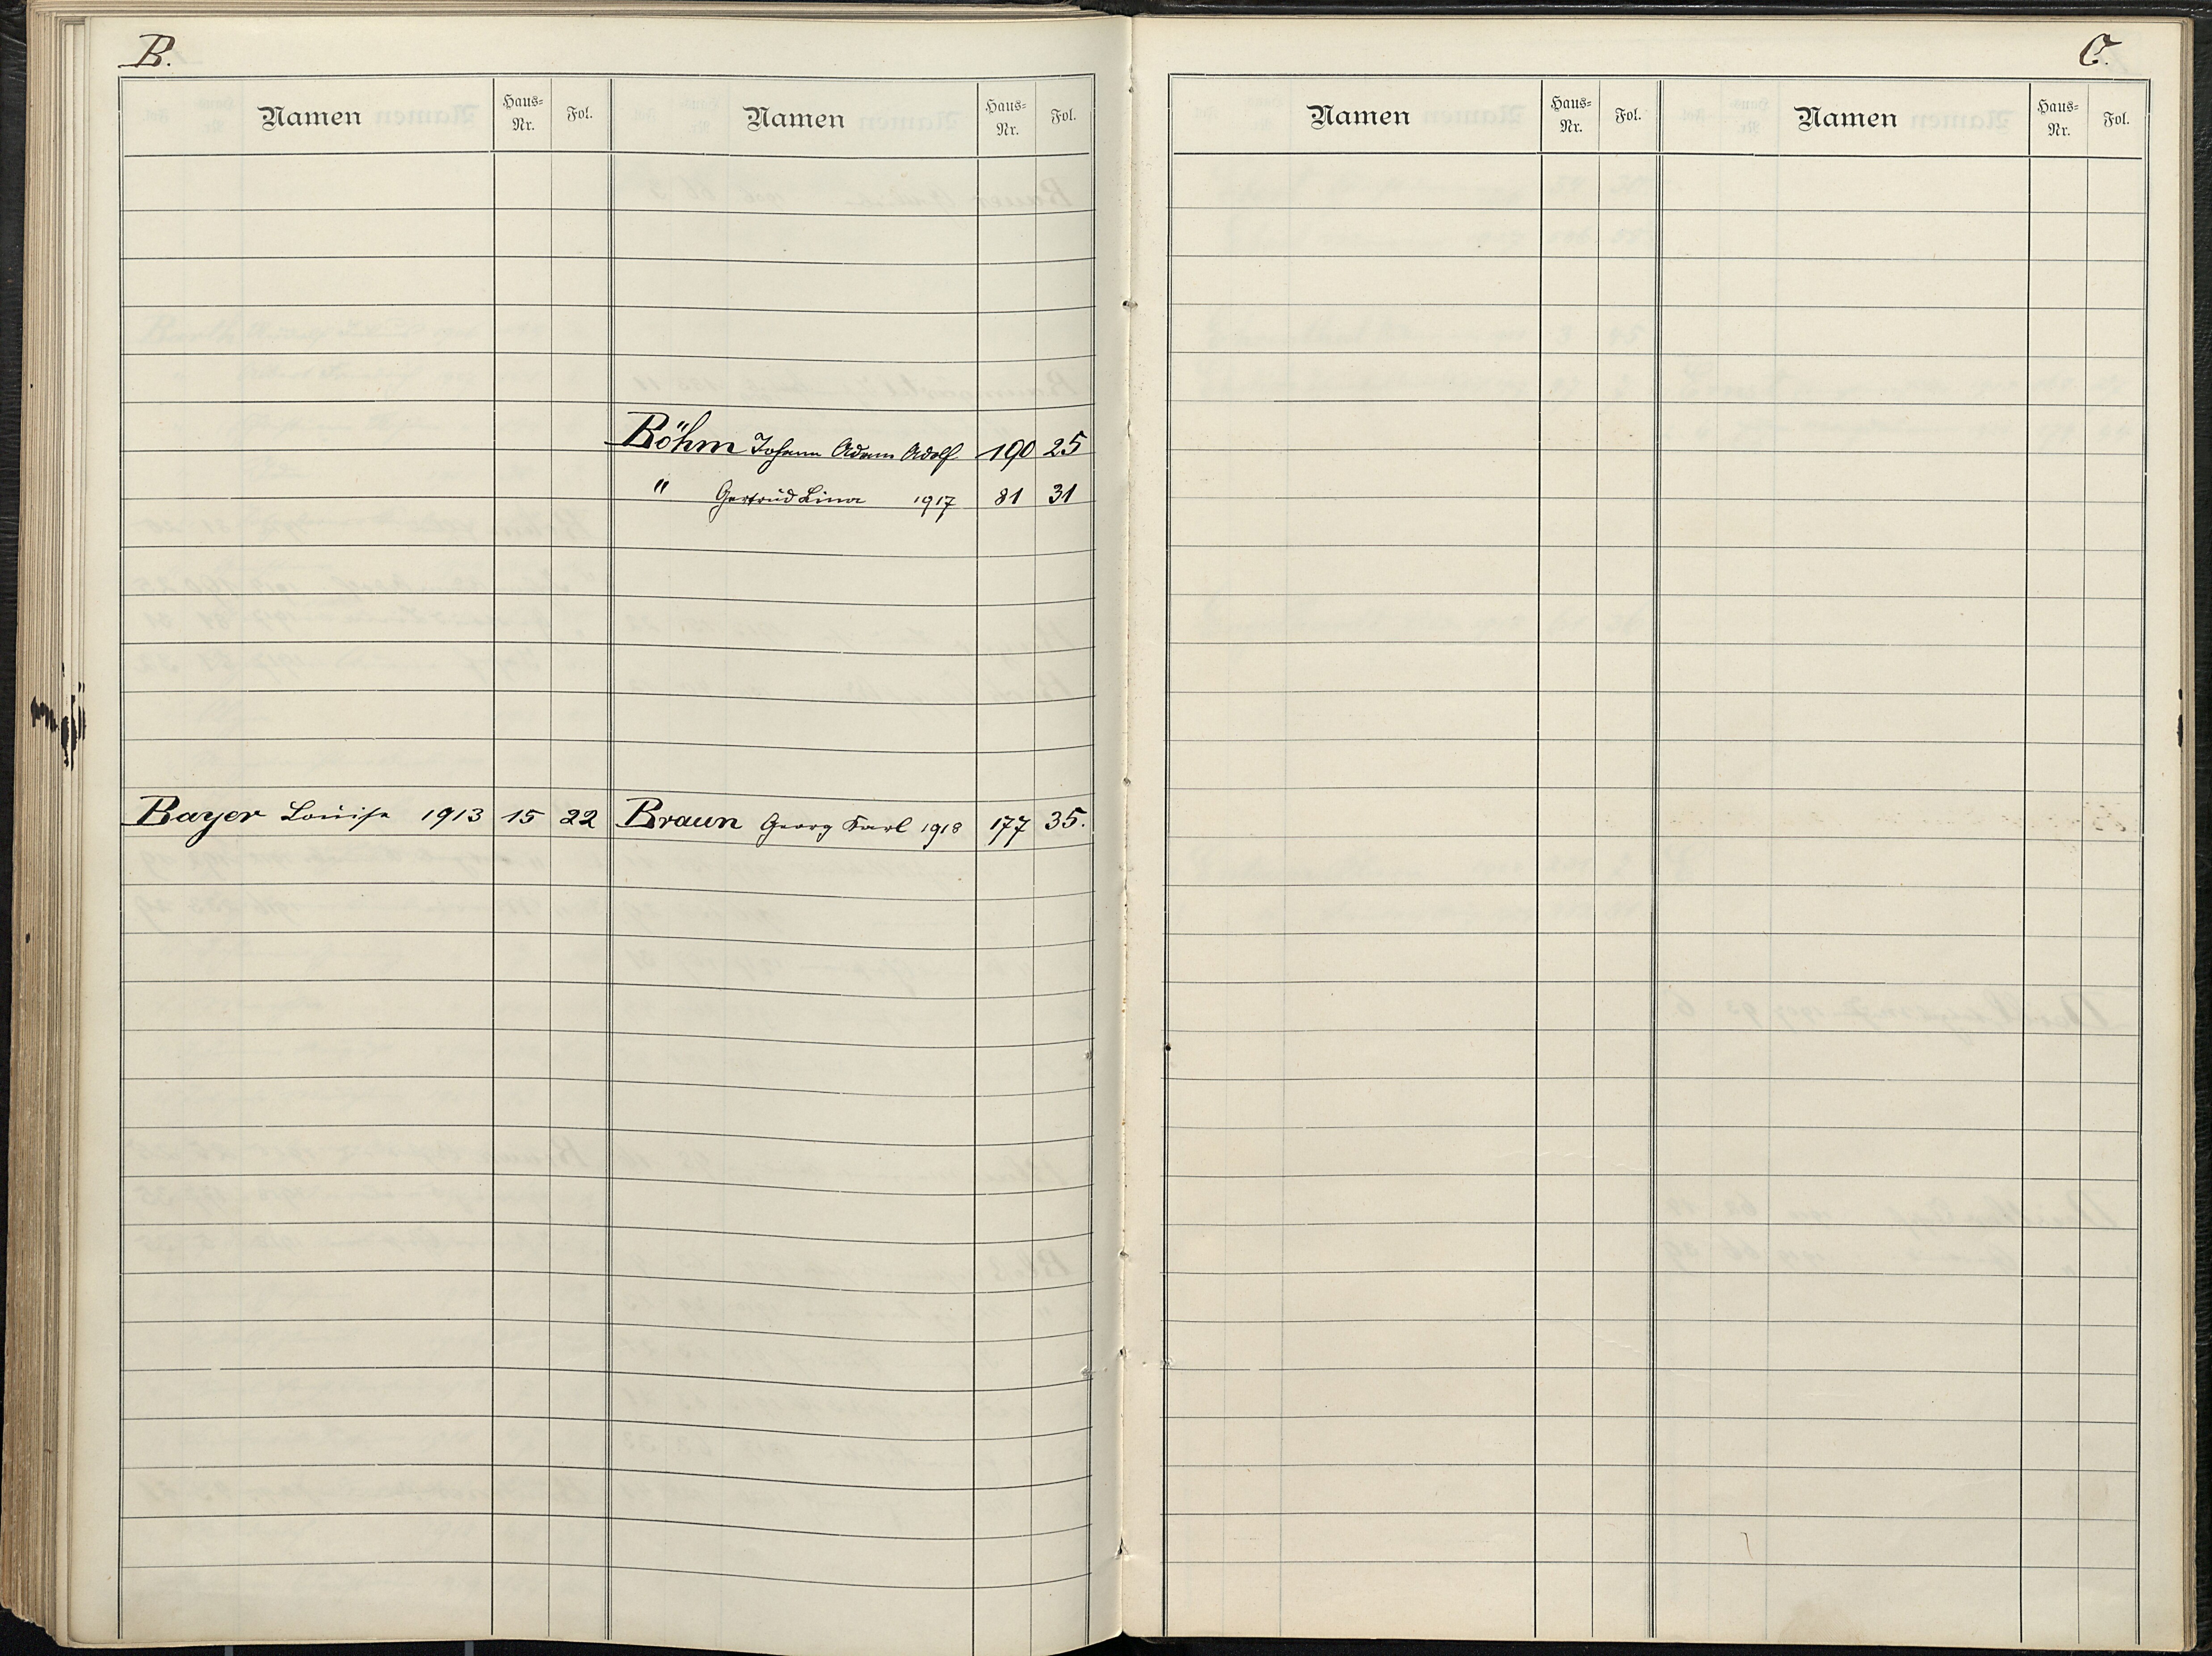 B.
Namen Haus-Nr. Fol. Namen Haus-Nr. Fol.
Böhm Johann Adam Adolf 190 25
" Gertrud Lina 1917 81 31
Bayer Louise 1913 15 22 Braun Georg Karl 1918 177 35.
C.
Namen Haus-Nr. Fol. Namen Haus-Nr. Fol.